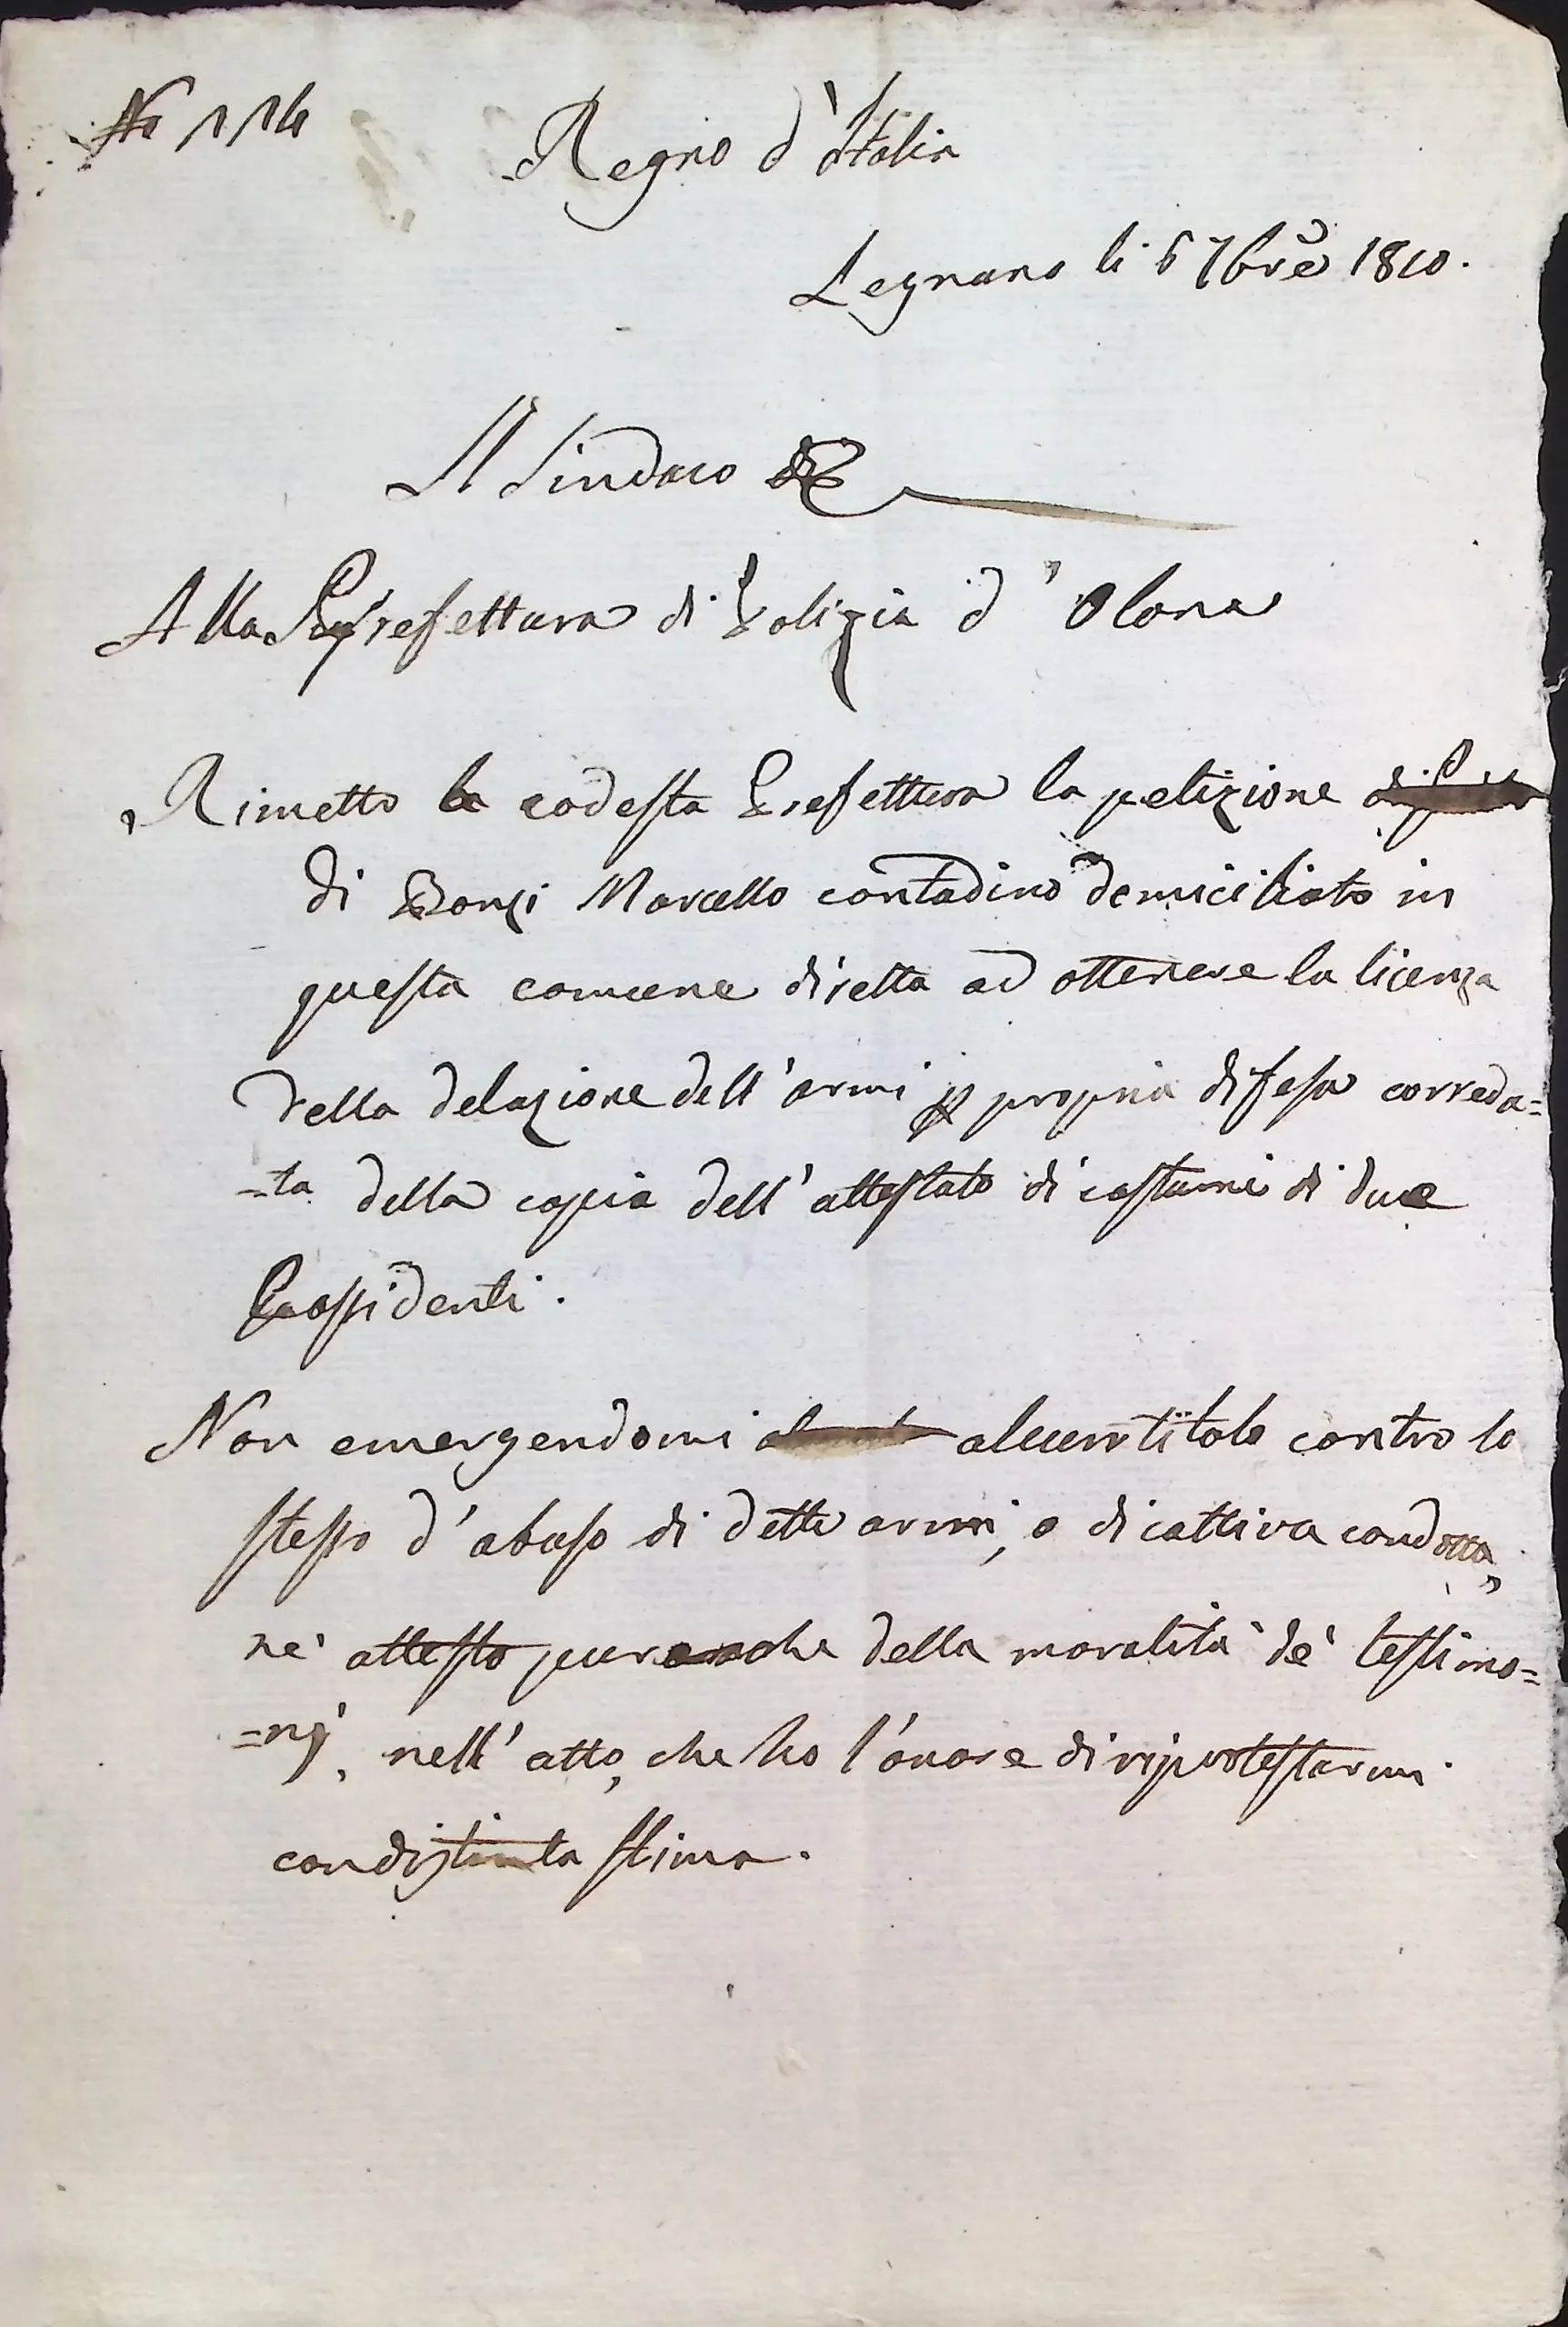 No 114
Regno d'Italia
Legnano li 6 7bre 1810.
Il Sindaco
Alla Prefettura di Polizia d'Olona
Rimetto a codesta Prefettura la petizione
di Bonzi Marcello contadino domiciliato in
questa comune diretta ad ottenere la licenza
della delazione dell'armi p propria difesa correda=
=ta della copia dell'attestato di costumi di due
Possidenti.
Non emergendomi alcun titolo contro lo
stesso d'abuso di dette armi, o di cattiva condotta,
ne attesto pur anche della moralità de' testimo=
=nj, nell'atto, che ho l'onore di riprotestarmi
con distinta stima.